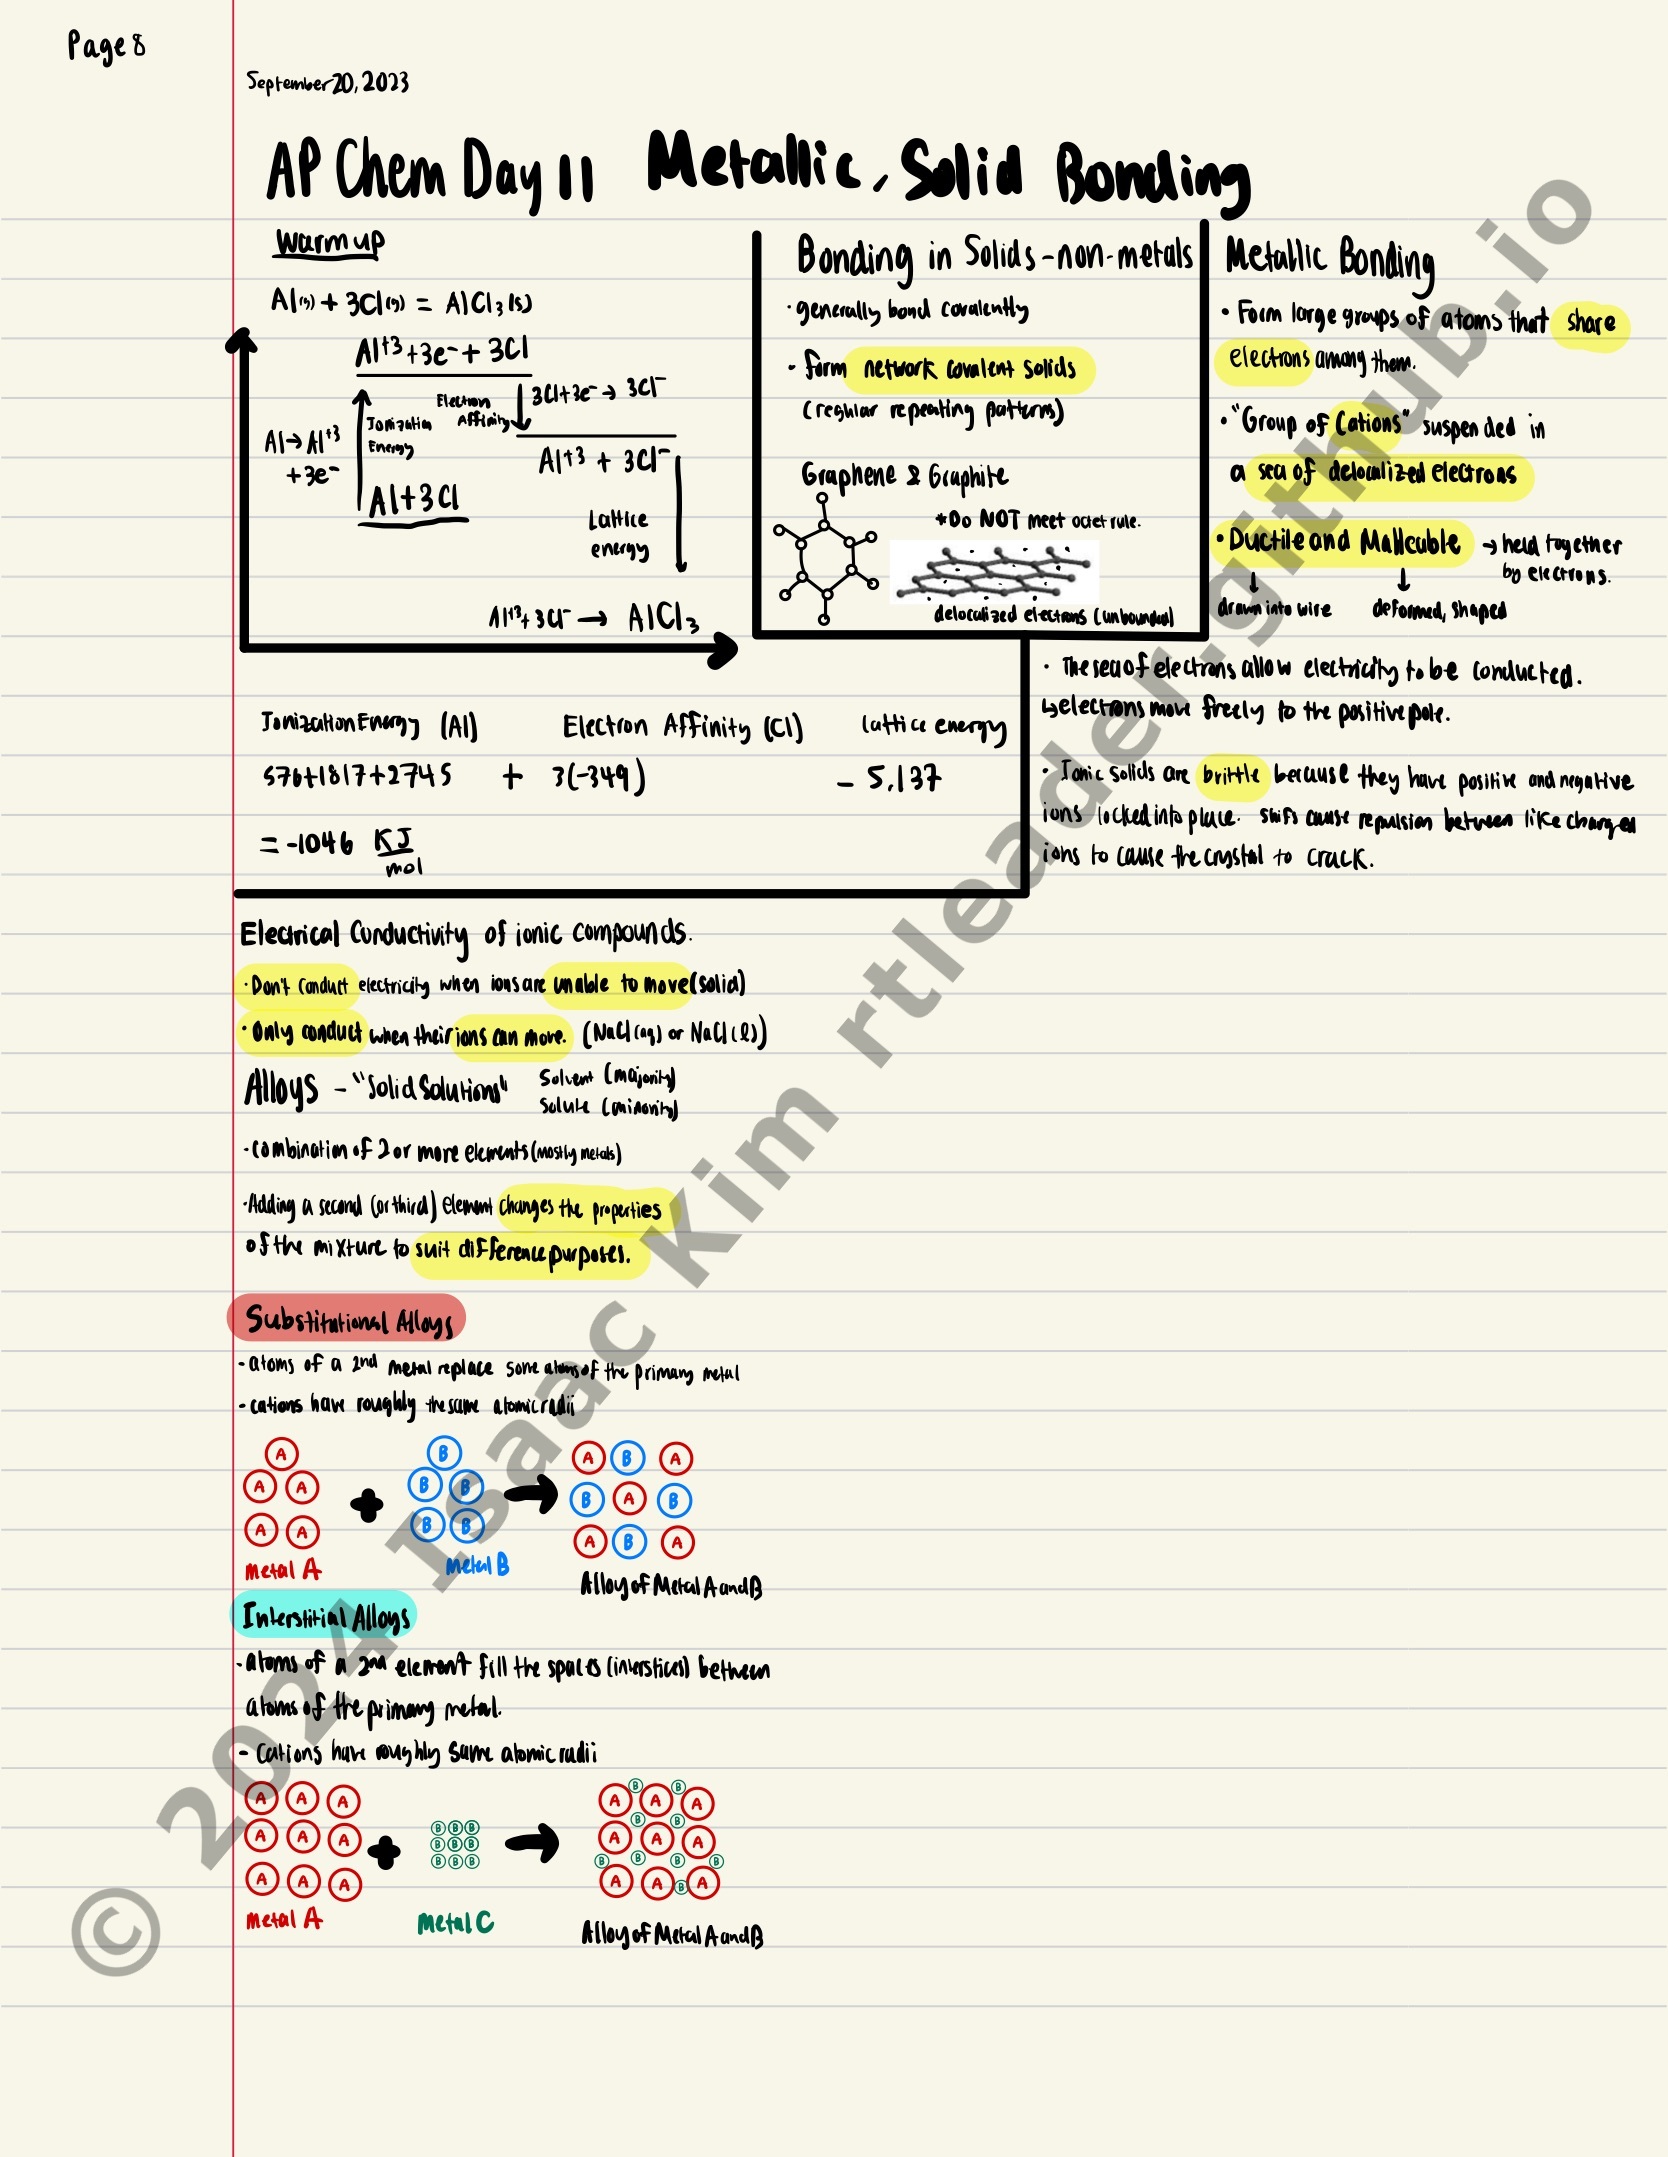 Page 8
September 20, 2023
AP Chem Day 11 Metallic, Solid Bonding
Warm up
Al(g) + 3Cl(g) = AlCl3(s)
Al+3 + 3e- + 3Cl
Electron
Affinity
3Cl+3e- → 3Cl-
Ionization
Energy
Al→Al+3
+3e-
Al+3 + 3Cl-
Al+3Cl
Lattice
energy
Al+3+3Cl- → AlCl3
Ionization Energy (Al) Electron Affinity (Cl) lattice energy
576+1817+2745 + 3(-349) - 5,137
= -1046 KJ
mol
Bonding in Solids-non-metals
·generally bond covalently
·form network covalent solids
(regular repeating patterns)
Graphene & Graphite
*Do NOT meet octet rule.
delocalized electrons (unbounded)
Metallic Bonding
• Form large groups of atoms that share
electrons among them.
•"Group of Cations" suspended in
a sea of delocalized electrons
•Ductile and Malleable → held together
by electrons.
drawn into wire deformed, shaped
· The sea of electrons allow electricity to be conducted.
↳electrons move freely to the positive pole.
· Ionic solids are brittle because they have positive and negative
ions locked into place. shifs cause repulsion between like charged
ions to cause the crystal to crack.
Electrical Conductivity of ionic compounds.
·Don't conduct electricity when ions are unable to move (solid)
·Only conduct when their ions can move. (NaCl(aq) or NaCl(l))
Alloys - "Solid Solutions" Solvent (majority)
Solute (minority)
·combination of 2 or more elements (mostly metals)
·Adding a second (or third) element changes the properties
of the mixture to suit difference purposes.
Substitutional Alloys
-atoms of a 2nd metal replace some atoms of the primary metal
-cations have roughly the same atomic radii
A B A B A
A A B B B A B
A A B B A B A
metal A metal B
Alloy of Metal A and B
Interstitial Alloys
-atoms of a 2nd element fill the spaces (interstices) between
atoms of the primary metal.
- Cations have roughly same atomic radii
B B
A A A A A A
B B B B B
A A A B B B A A A
B B B B B B B
A A A A A B A
metal A metal C Alloy of Metal A and B
© 2024 Isaac Kim rtleader.github.io